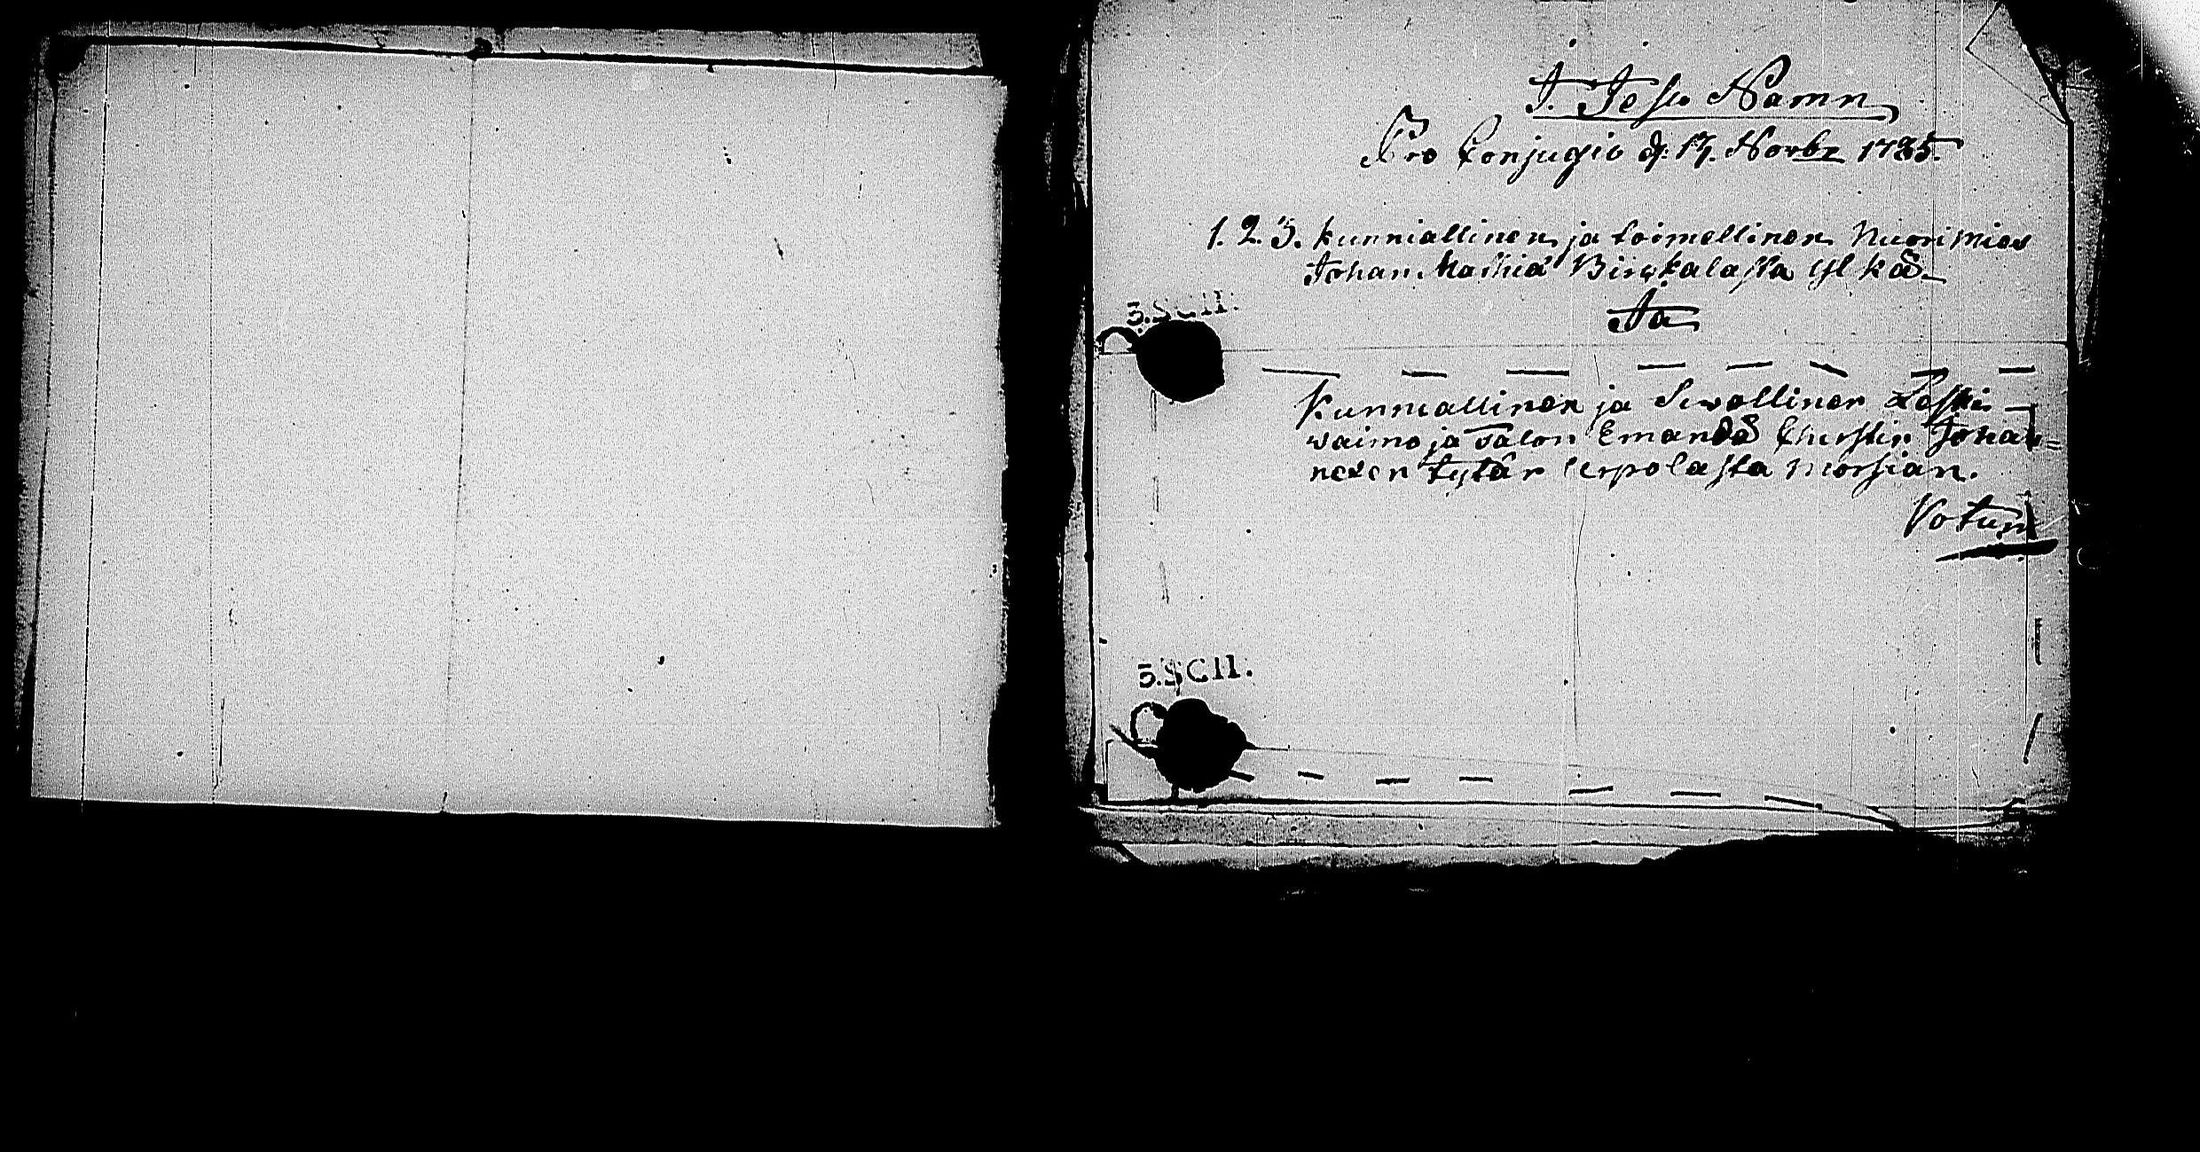 J. Jesu Namn
Pro Conjugio d. 17. Novbr 1785.
1. 2. 3. Kunniallinen ja toimellinen Nuorimies
Johan Mathia Birckalasta Ylkä
Ja
3.SCH.
Kunniallinen ja Siwellinen Leski
waimo ja Talon Emandä Christin Johan=
nexen tytär Lerpolasta morsian.
Votum
5.SCH.